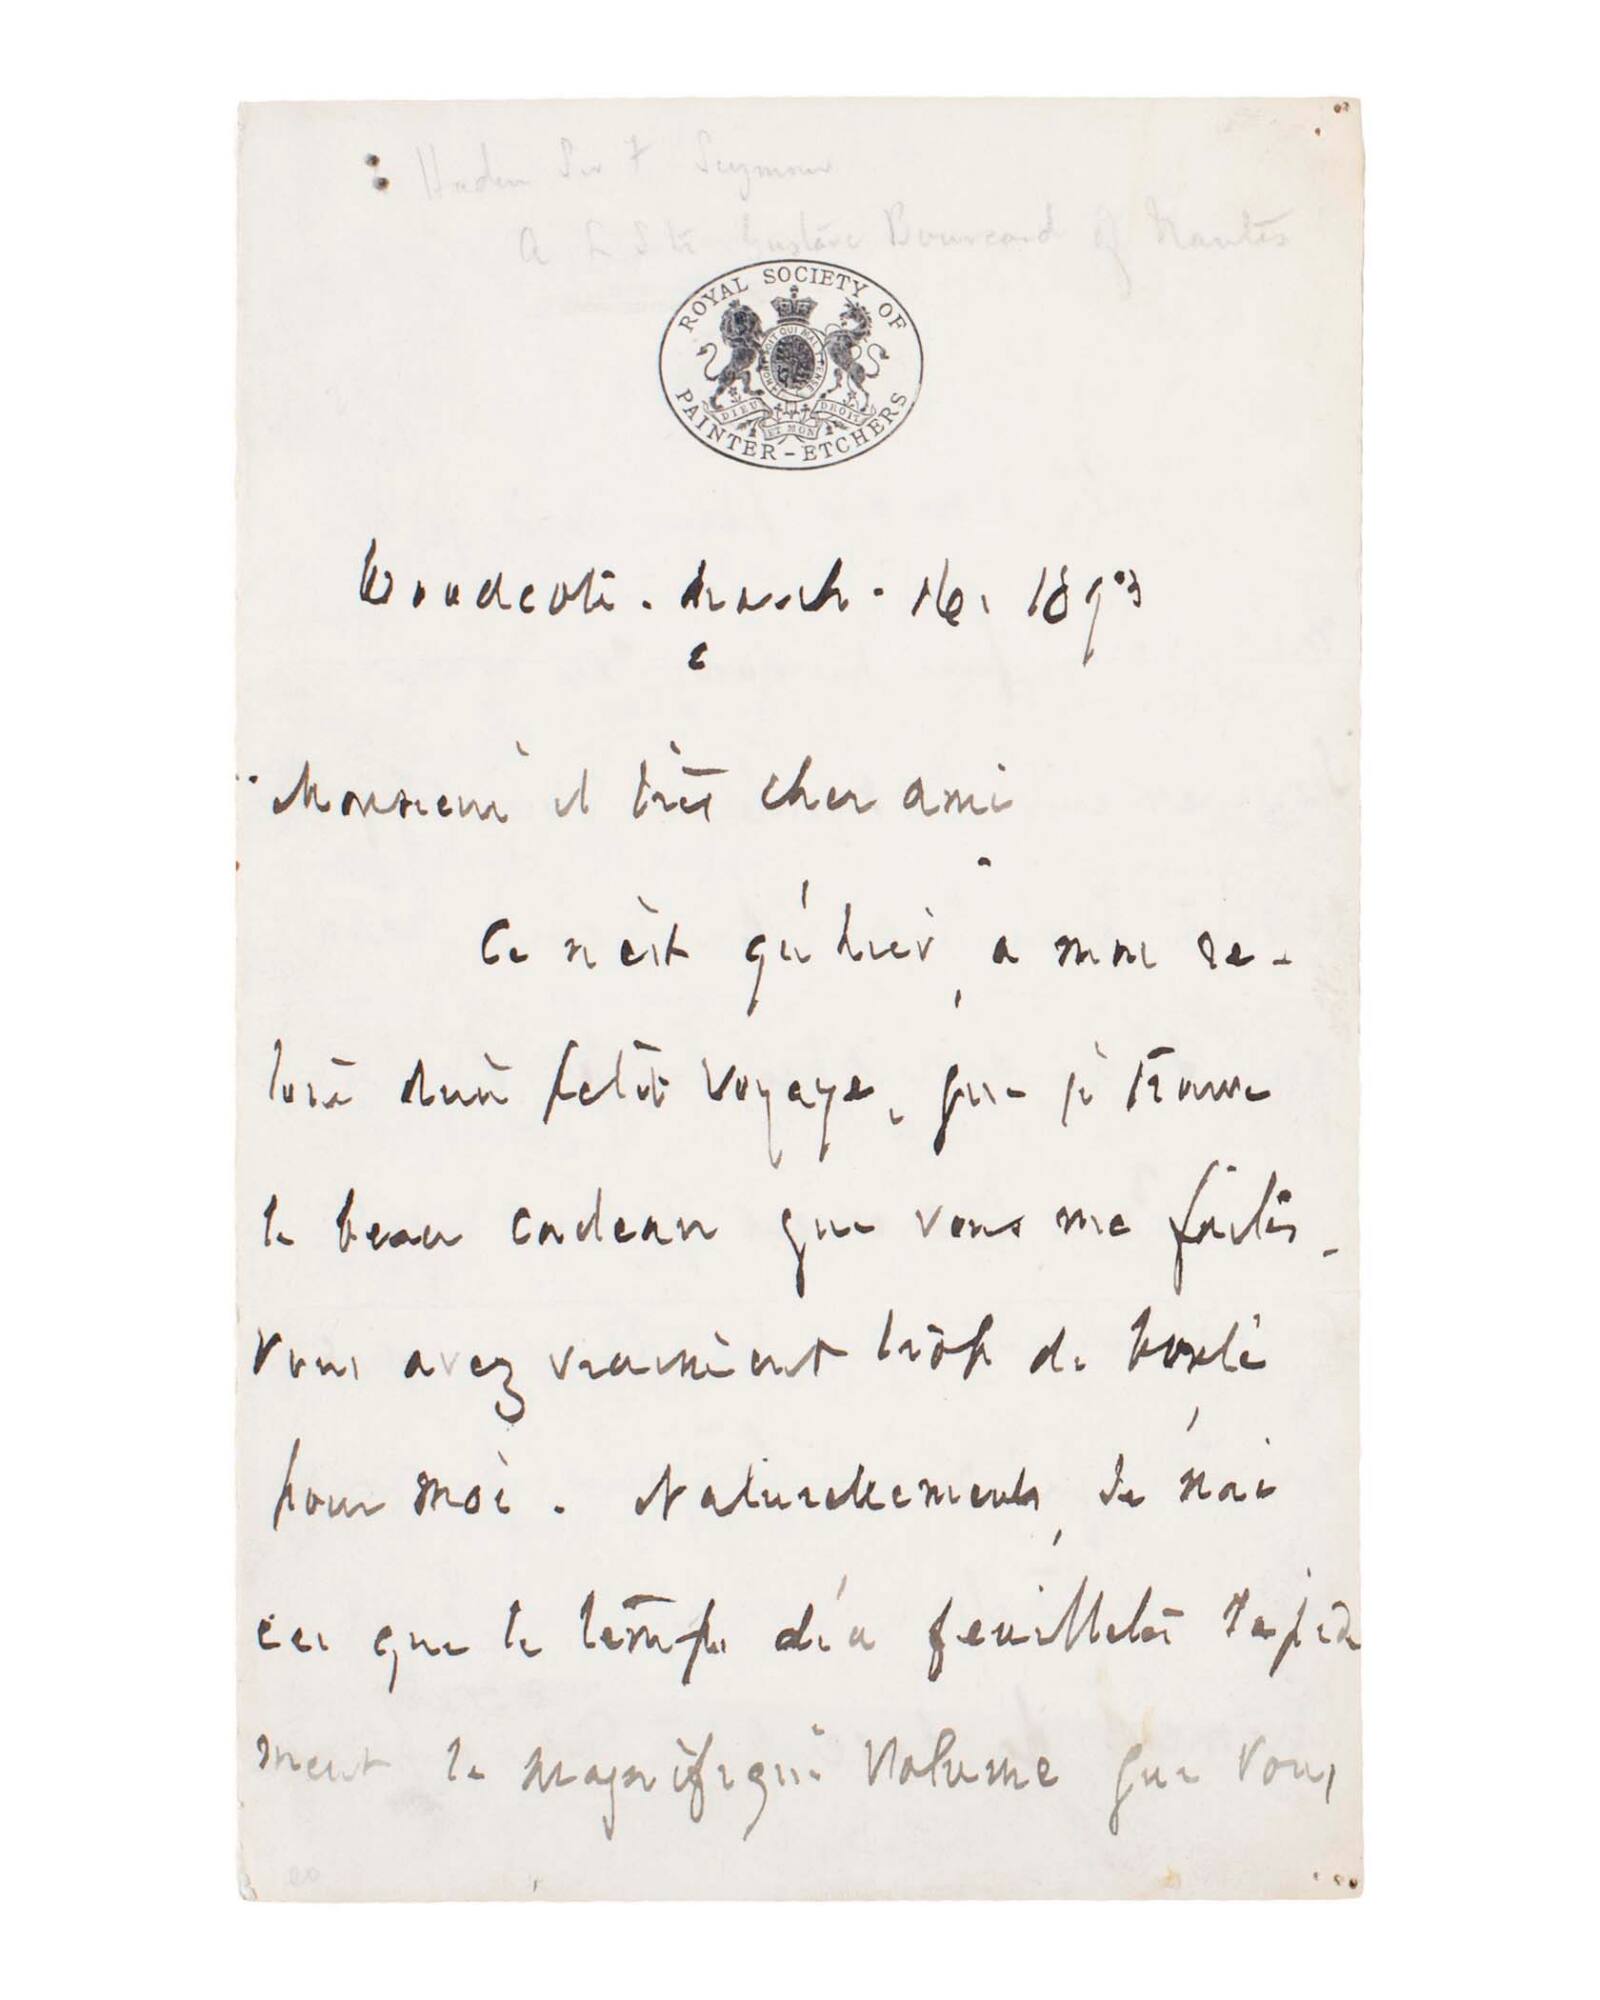 Haden Sir F Seymour
A L S to Gustave Bourcard of Nantes
ROYAL SOCIETY OF
PAINTER-ETCHERS
HONI SOIT QUI MAL Y PENSE
DIEU ET MON DROIT
Woodcote. March. 16. 1893
Monsieur et très cher ami
Ce n'est qu'hier, a mon re-
tour d'un petit voyage, que je trouve
le beau cadeau que vous me faites.
Vous avez vraiment trop de bonté
pour moi. Naturellement, je n'ai
eu que le temps d'a feuilleter rapide
ment le magnifique Volume que vous